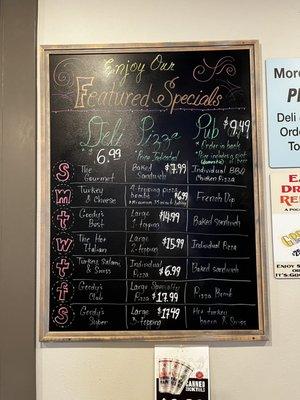 Enjoy Our
Featured Specials
Deli
$6.99
Pizza
*Price Indicated
Pub $9.49
*Order in back
S The Gourmet
Baked Sandwich $7.99
Individual BBQ Chicken Pizza
m Turkey & Cheese
4-topping pizza
French Dip
t Goody's Best
Large 1-topping $14.99
Baked Sandwich
w The Hot Italian
Large 2-topping $15.99
Individual Pizza
t Turkey, Salami, & Swiss
Individual Pizza $6.99
Baked sandwich
f Goody's Club
Large Specialty Pizza $17.99
Pizza Bomb
s Goody's Super
Large 3-topping $17.49
Hot turkey bacon & Swiss
More
Deli
Order
To
CANNED
COCKTAILS